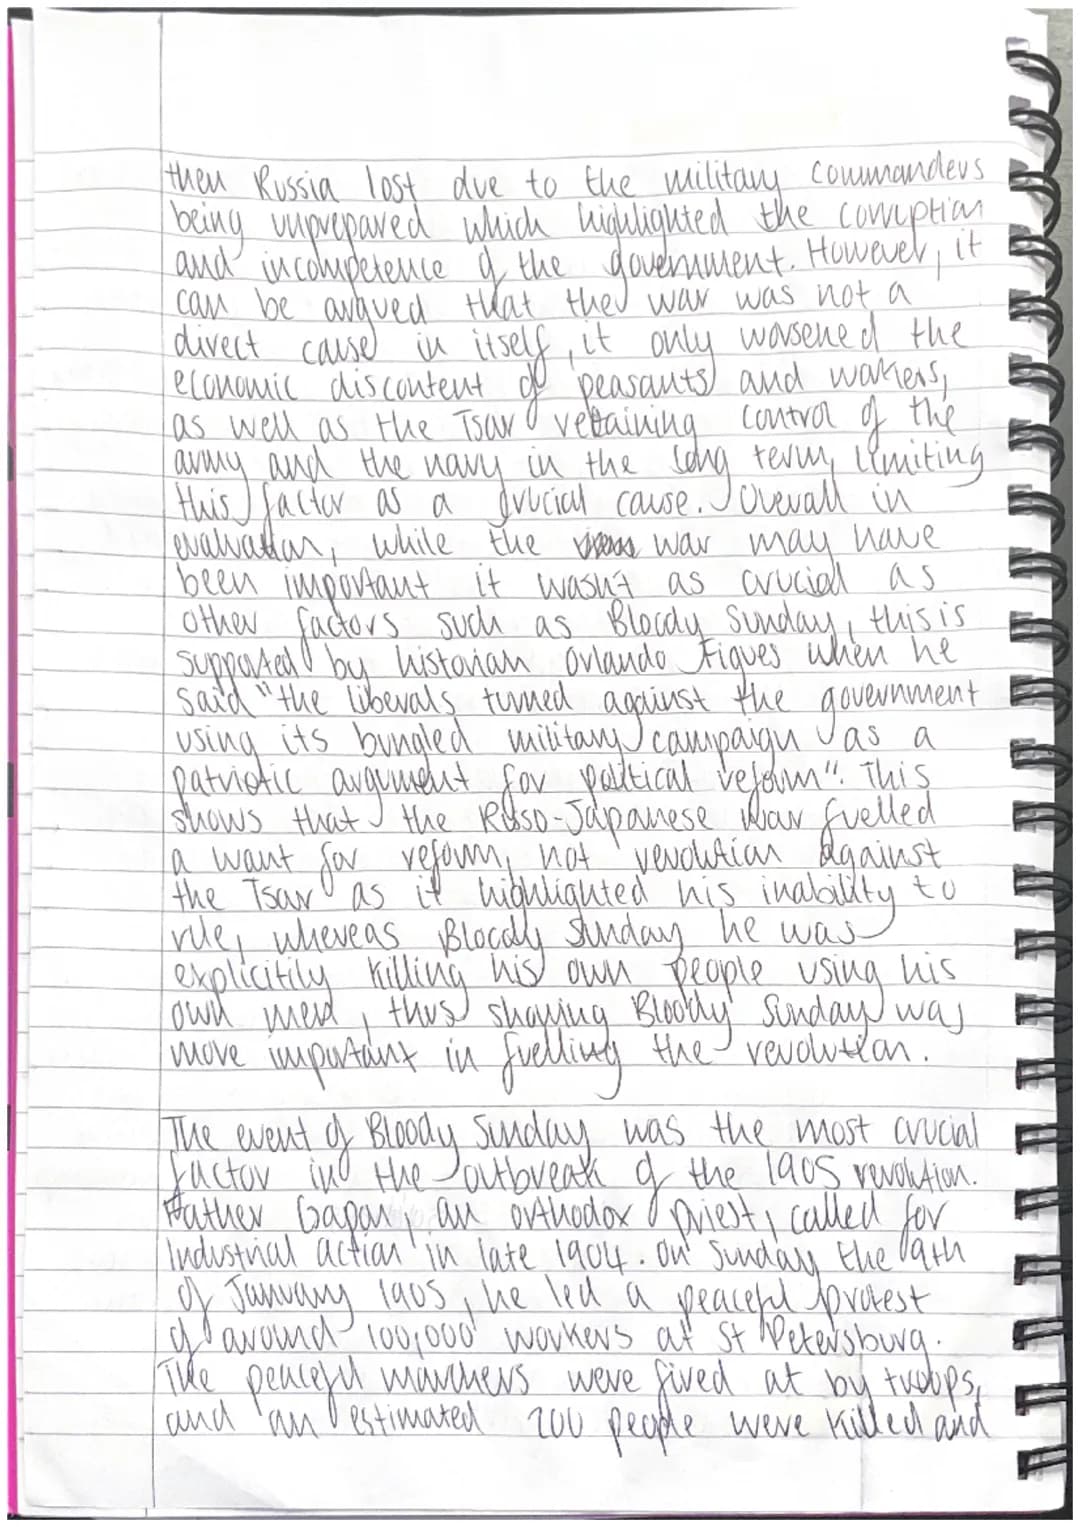 then Russia lost due to the military commanders
being unprepared which highlighted the corruption
and incompetence of the government. However, it
can be argued that the war was not a
direct cause in itself, it only worsened the
economic discontent of peasants and workers,
as well as the Tsar retaining control of the
army and the navy in the long term, limiting
this factor as a crucial cause. Overall in
evaluation, while the war may have
been important it wasn't as crucial as
other factors such as Bloody Sunday, this is
supported by historian Orlando Figues when he
said "the liberals turned against the government
using its bungled military campaign as a
patriotic argument for political reform". This
shows that the Russo-Japanese war fuelled
a want for reform, not revolution against
the Tsar as it highlighted his inability to
rule, whereas Bloody Sunday he was
explicitily killing his own people using his
own men, thus showing Bloody Sunday was
more important in fuelling the revolution.
The event of Bloody Sunday was the most crucial
factor in the outbreak of the 1905 revolution.
Father Gapon, an orthodox priest, called for
Industrial action in late 1904. On Sunday the 9th
of January 1905, he led a peaceful protest
of around 100,000 workers at St Petersburg.
The peaceful marchers were fired at by troops,
and an estimated 200 people were killed and